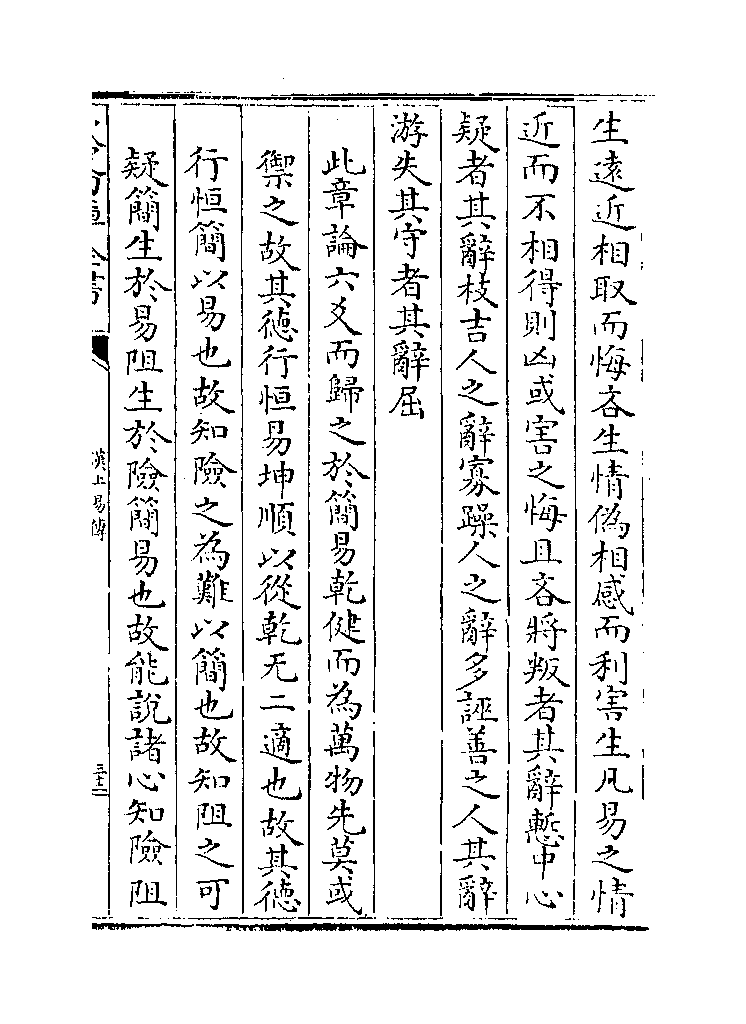 生遠近相取而悔吝生情偽相感而利害生凡易之情
近而不相得則凶或害之悔且吝將叛者其辭慙中心
疑者其辭枝吉人之辭寡躁人之辭多誣善之人其辭
游失其守者其辭屈
此章論六爻而歸之於簡易乾健而為萬物先莫或
禦之故其徳行恒易坤順以從乾无二適也故其徳
行恒簡以易也故知險之為難以簡也故知阻之可
疑簡生於易阻生於險簡易也故能說諸心知險阻
漢上易傳